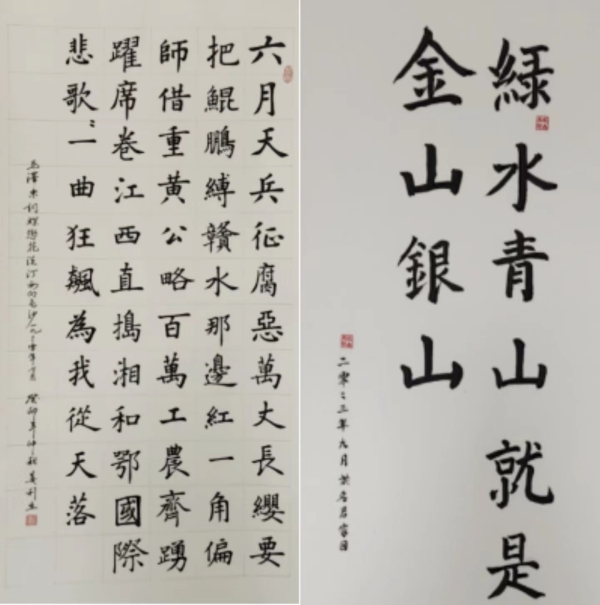 六月天兵征腐惡萬丈長纓要
把鯤鵬縛贛水那邊紅一角偏
師借重黃公略百萬工農齊踴
躍席卷江西直搗湘和鄂國際
悲歌〻一曲狂飆為我從天落
毛澤東詞蝶戀花從汀州向長沙 癸卯年仲秋
綠水青山就是
金山銀山
二零〻三年九月